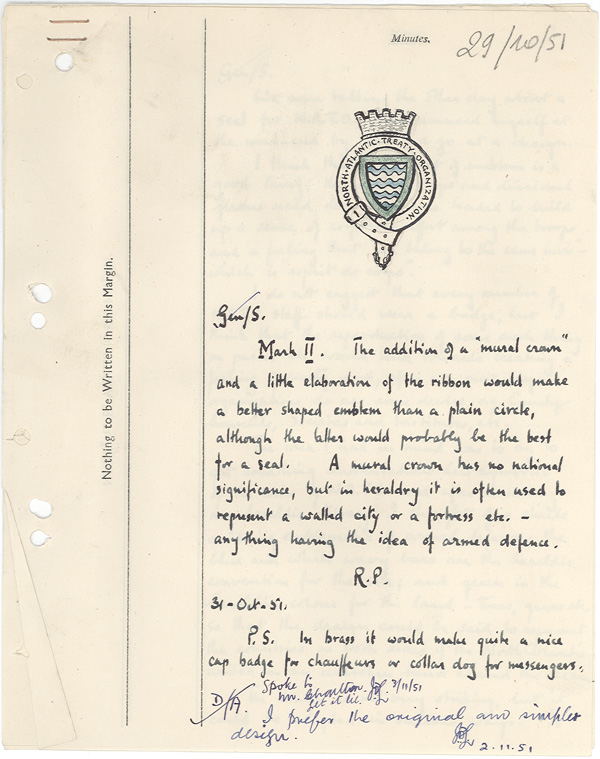 Minutes.
29/10/51
NORTH·ATLANTIC·TREATY·ORGANIZATION·
Nothing to be Written in this Margin.
Gen/S.
Mark II. The addition of a "mural crown"
and a little elaboration of the ribbon would make
a better shaped emblem than a plain circle,
although the latter would probably be the best
for a seal. A mural crown has no national
significance, but in heraldry it is often used to
represent a walled city or a fortress etc. –
anything having the idea of armed defence.
R.P.
31-Oct-51.
P.S. In brass it would make quite a nice
cap badge for chauffeurs or collar dog for messengers.
Spoke to
Mr. 3/11/51
Let it lie.
D/A.
I prefer the original and simpler
design.
2.11.51